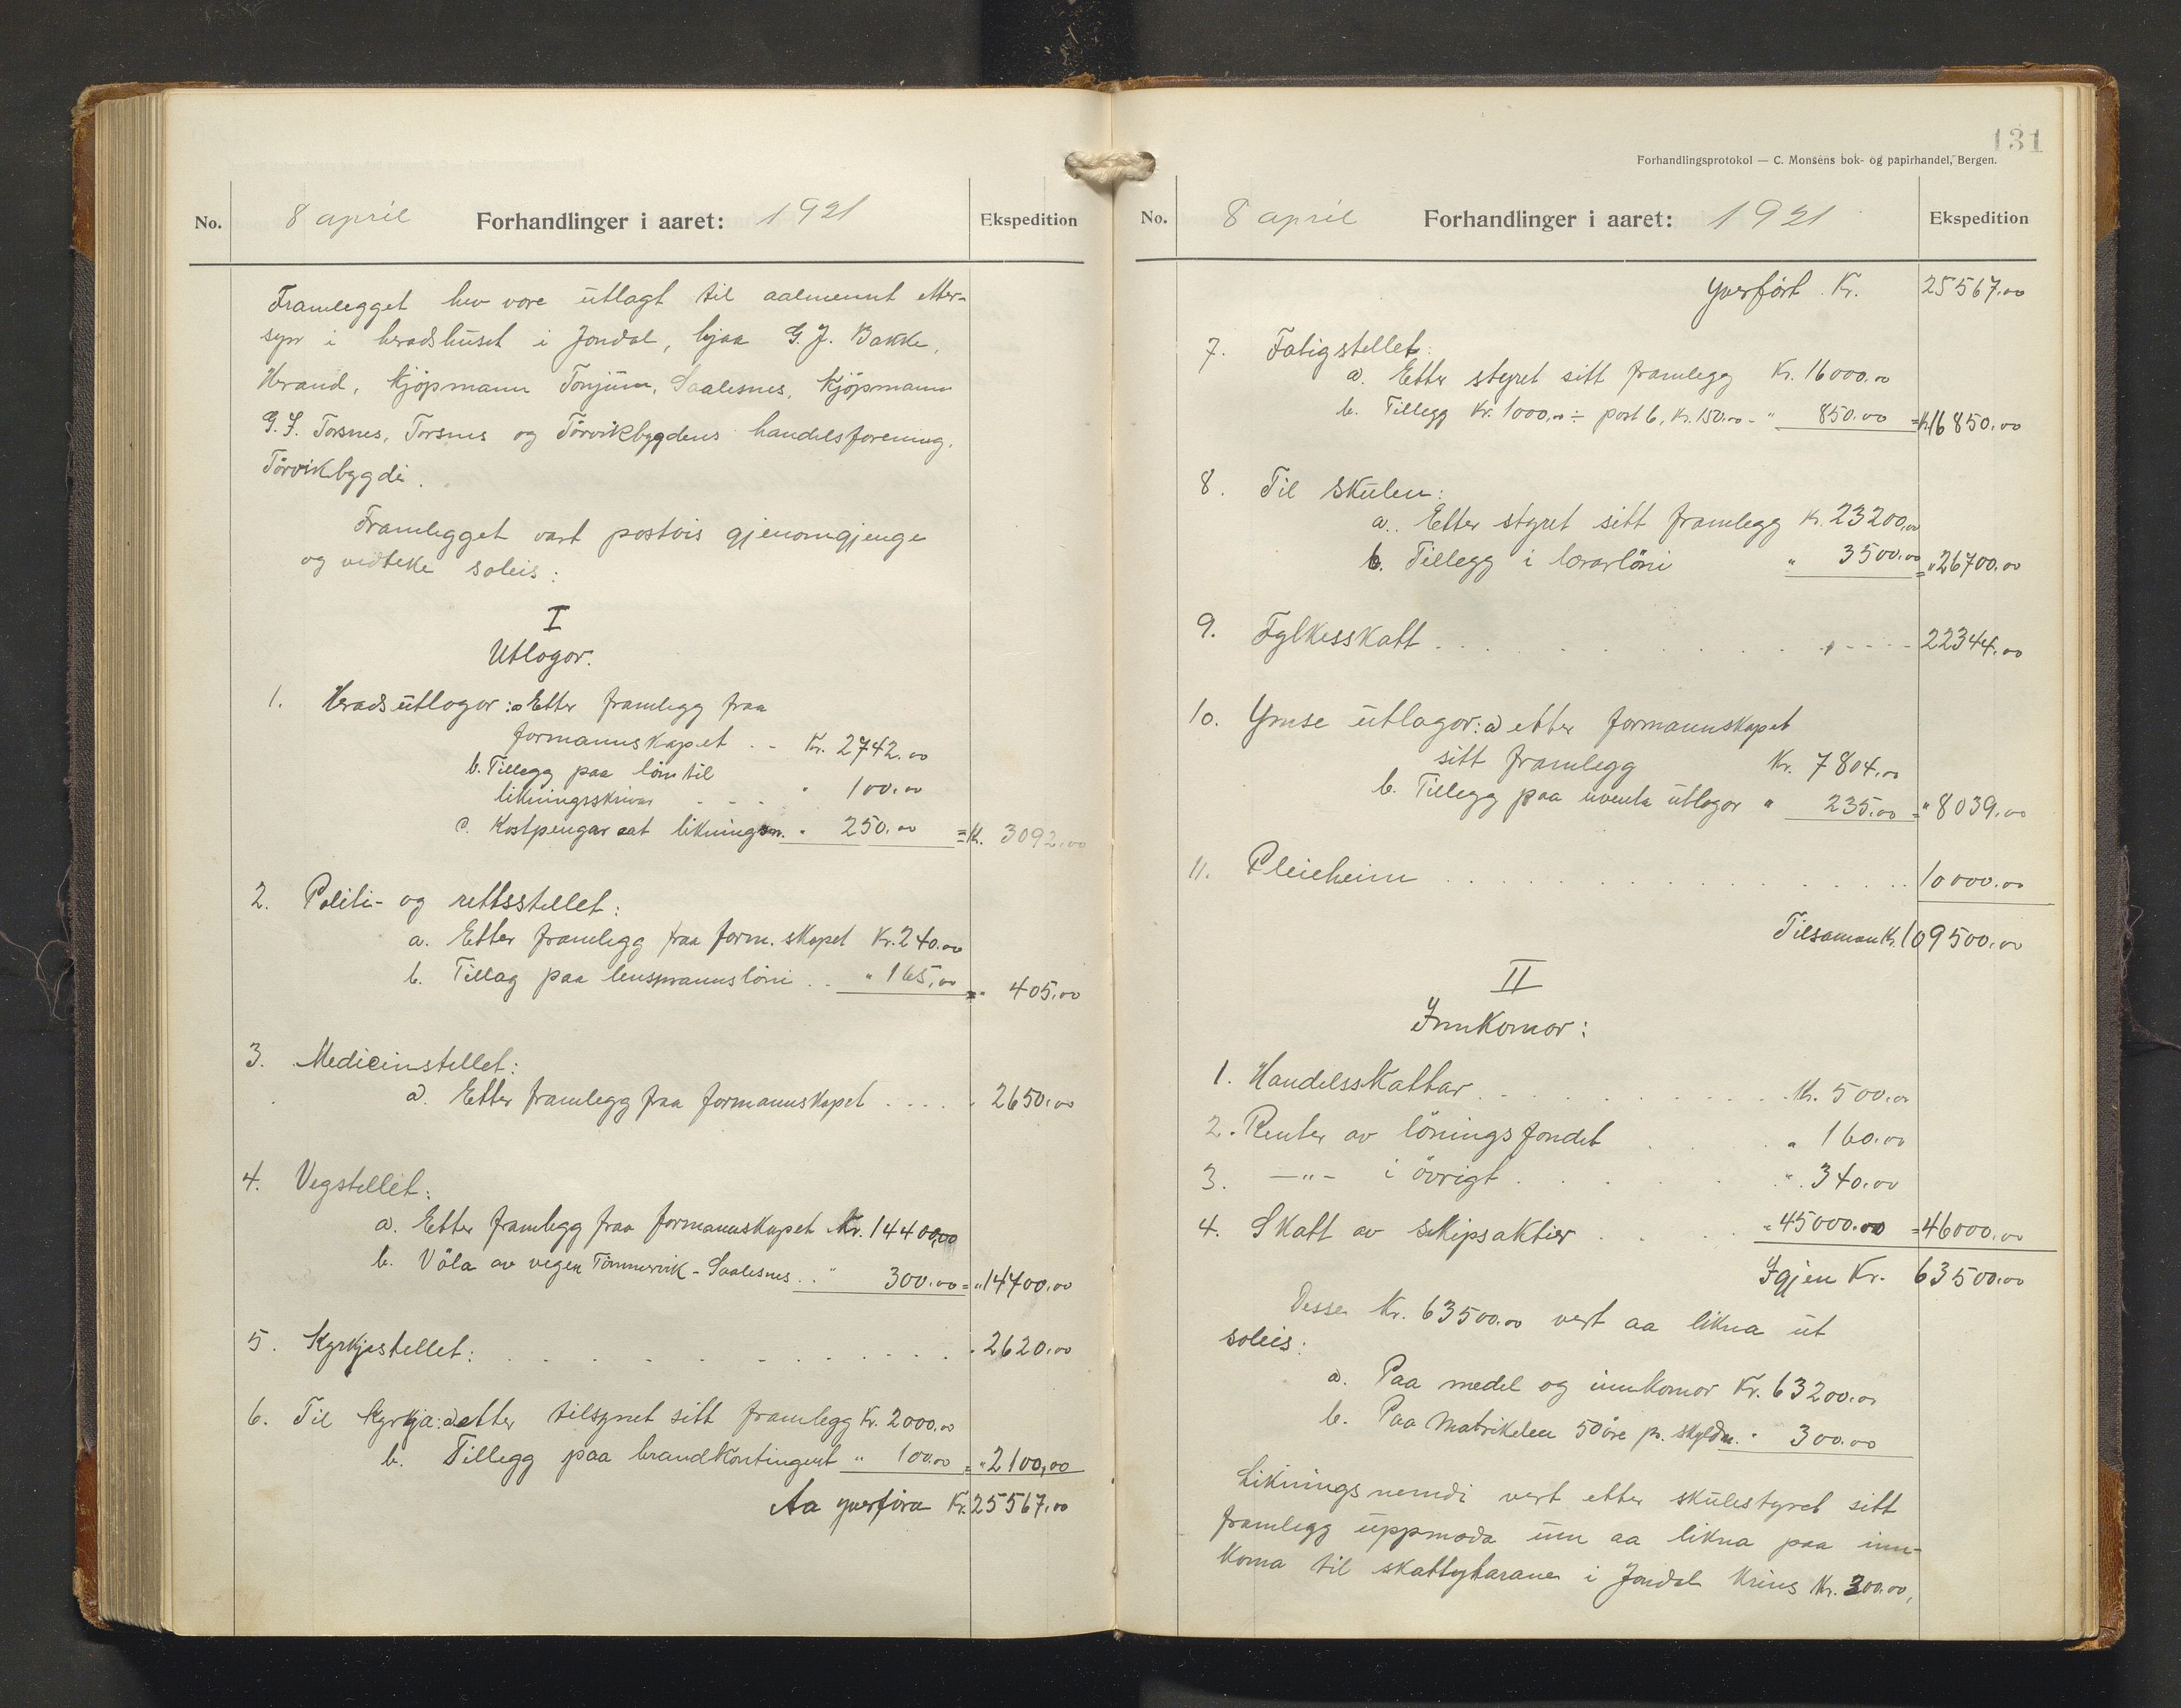 No. 8 april Forhandlinger i aaret: 1921 Ekspedition
Framlegget hev vore utlagt til aalmennt etter-
syn i heradshuset i Jondal, hjaa G. J. Bakke,
Herand, kjöpmann Tonjum, Saalesnes, kjöpmann
G. J. Torsnes, Torsnes og Törvikbygdens handelsforening,
Törvikbygdi.
Framlegget vart postvis gjenomgjenge
og vedteke soleis:
I
Utlogor.
1. Heradsutlogor: a Etter framlegg fraa
formannskapet . . Kr. 2742.00
b. Tillegg paa lön til
likningsskrivar . . . " 100.00
c. Kostpengar aat likningsn. " 250.00 = Kr. 3092.00
2. Politi- og rettsstellet:
a. Etter framlegg fraa form.skapet Kr. 240.00
b. Tillag paa lensmannsløni . . " 165,00 = " 405,00
3. Medicinstellet:
a. Etter framlegg fraa formannskapet . . . . " 2650.00
4. Vegstellet:
a. Etter framlegg fraa formannskapet Kr. 14400,00
b. Völa av vegen Tömmervik - Saalesnes . . " 300.00 = " 14700.00
5. Kyrkjestellet: . . . . . . . . . . " 2620.00
6. Til kyrkja: a etter tilsynet sitt framlegg Kr. 2000.00
b. Tillegg paa brandkontingent " 100.00 = " 2100,00
Aa yverföra Kr. 25567.00
131
Forhandlingsprotokol — C. Monsens bok- og papirhandel, Bergen.
No. 8 april Forhandlinger i aaret: 1921 Ekspedition
Yverfört Kr. 25567.00
7. Fatigstellet:
a. Etter styret sitt framlegg Kr. 16000.00
b. Tillegg Kr. 1000,00 ÷ post 6, Kr. 150.00 - " 850.00 = Kr. 16850.00
8. Til skulen:
a. Etter styret sitt framlegg Kr. 23200,00
b. Tillegg i lærarlöni " 3500.00 = " 26700.00
9. Fylkesskatt . . . . . . . . . . 22344.00
10. Ymse utlogor: a etter formannskapet
sitt framlegg Kr. 7804.00
b. Tillegg paa uventa utlogor " 235.00 = " 8039.00
11. Pleieheim . . . . . . . . . . 10000.00
Tilsaman Kr. 109500.00
II
Innkomor:
1. Handelsskattar . . . . . . . . . Kr. 500.00
2. Renter av lönings fondet . . . . " 160.00
3. —"— i övrigt . . . . . . " 340.00
4. Skatt av skipsaktier . . . . " 45000.00 = 46000.00
Igjen Kr. 63500.00
Desse Kr. 63500.00 vert aa likna ut
soleis:
a. Paa medel og innkomor Kr. 63200.00
b. Paa Matrikelen 50 öre pr. skyldm. " 300.00
Likningsnemdi vert etter skulestyret sitt
framlegg uppmoda um aa likna paa inn-
koma til skattytarane i Jondal krins Kr. 300.00,